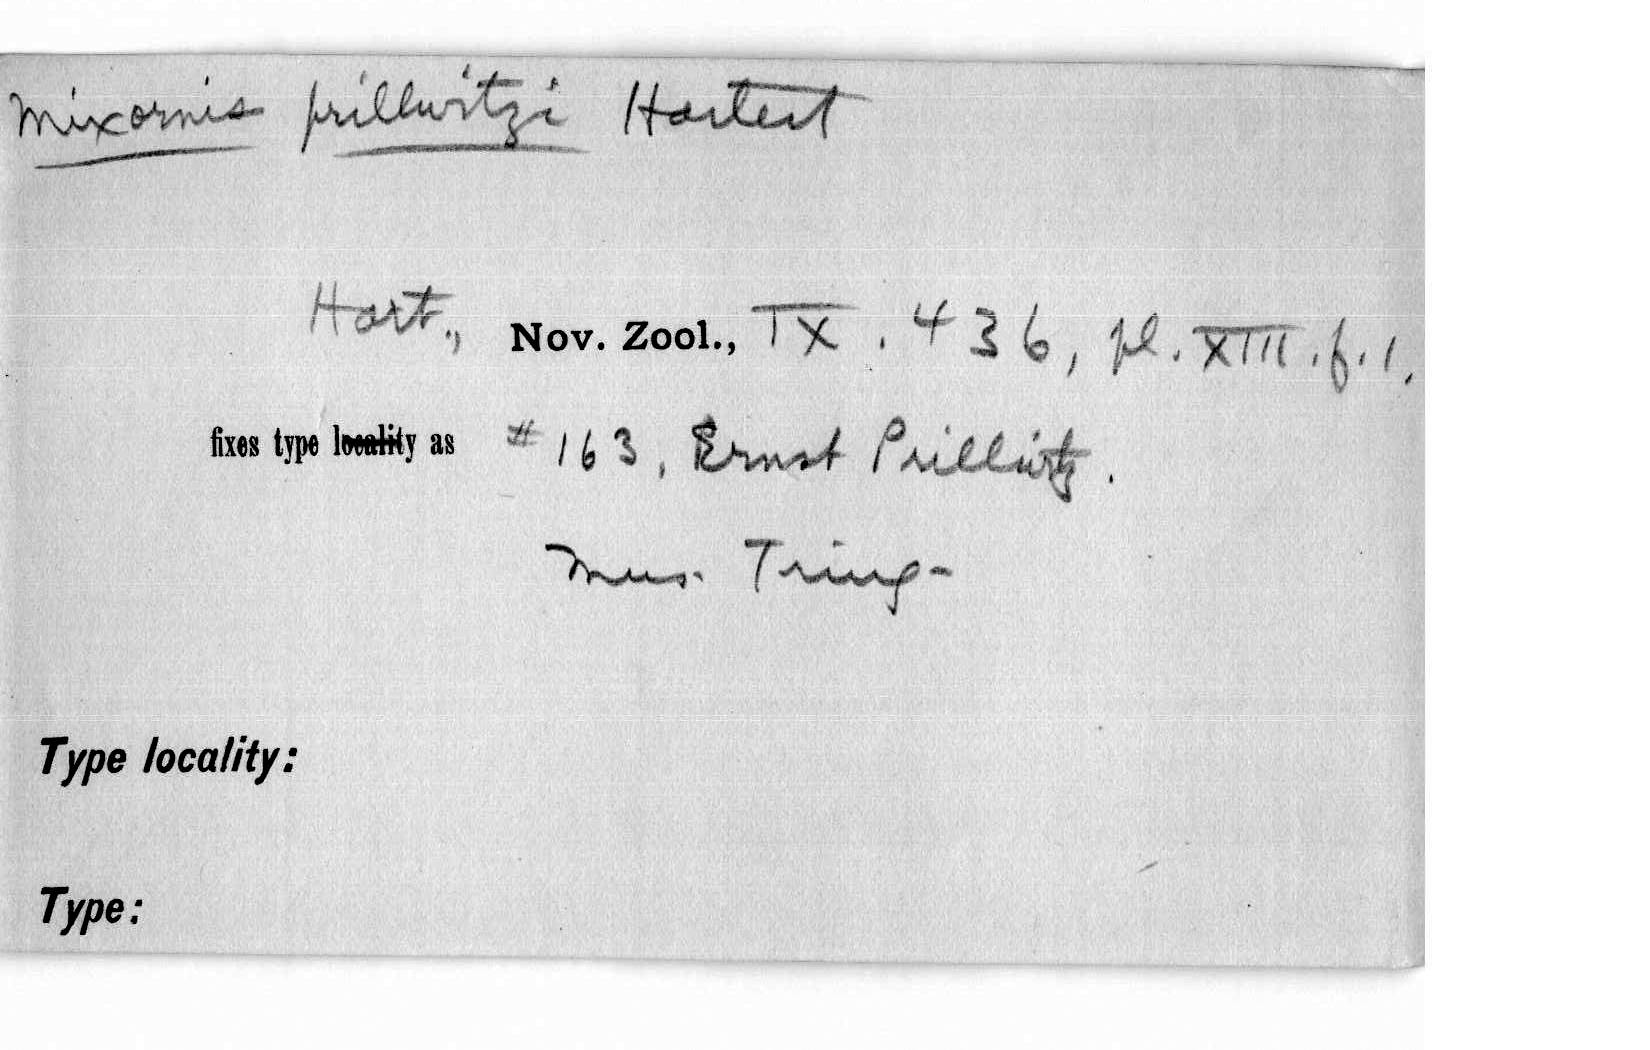 Mixornis prillwitzi Hartert
Hart., Nov. Zool., IX. 436, pl. XIII. f. 1.
fixes type locality as #163, Ernst Prillwitz.
Mus. Tring-
Type locality:
Type: